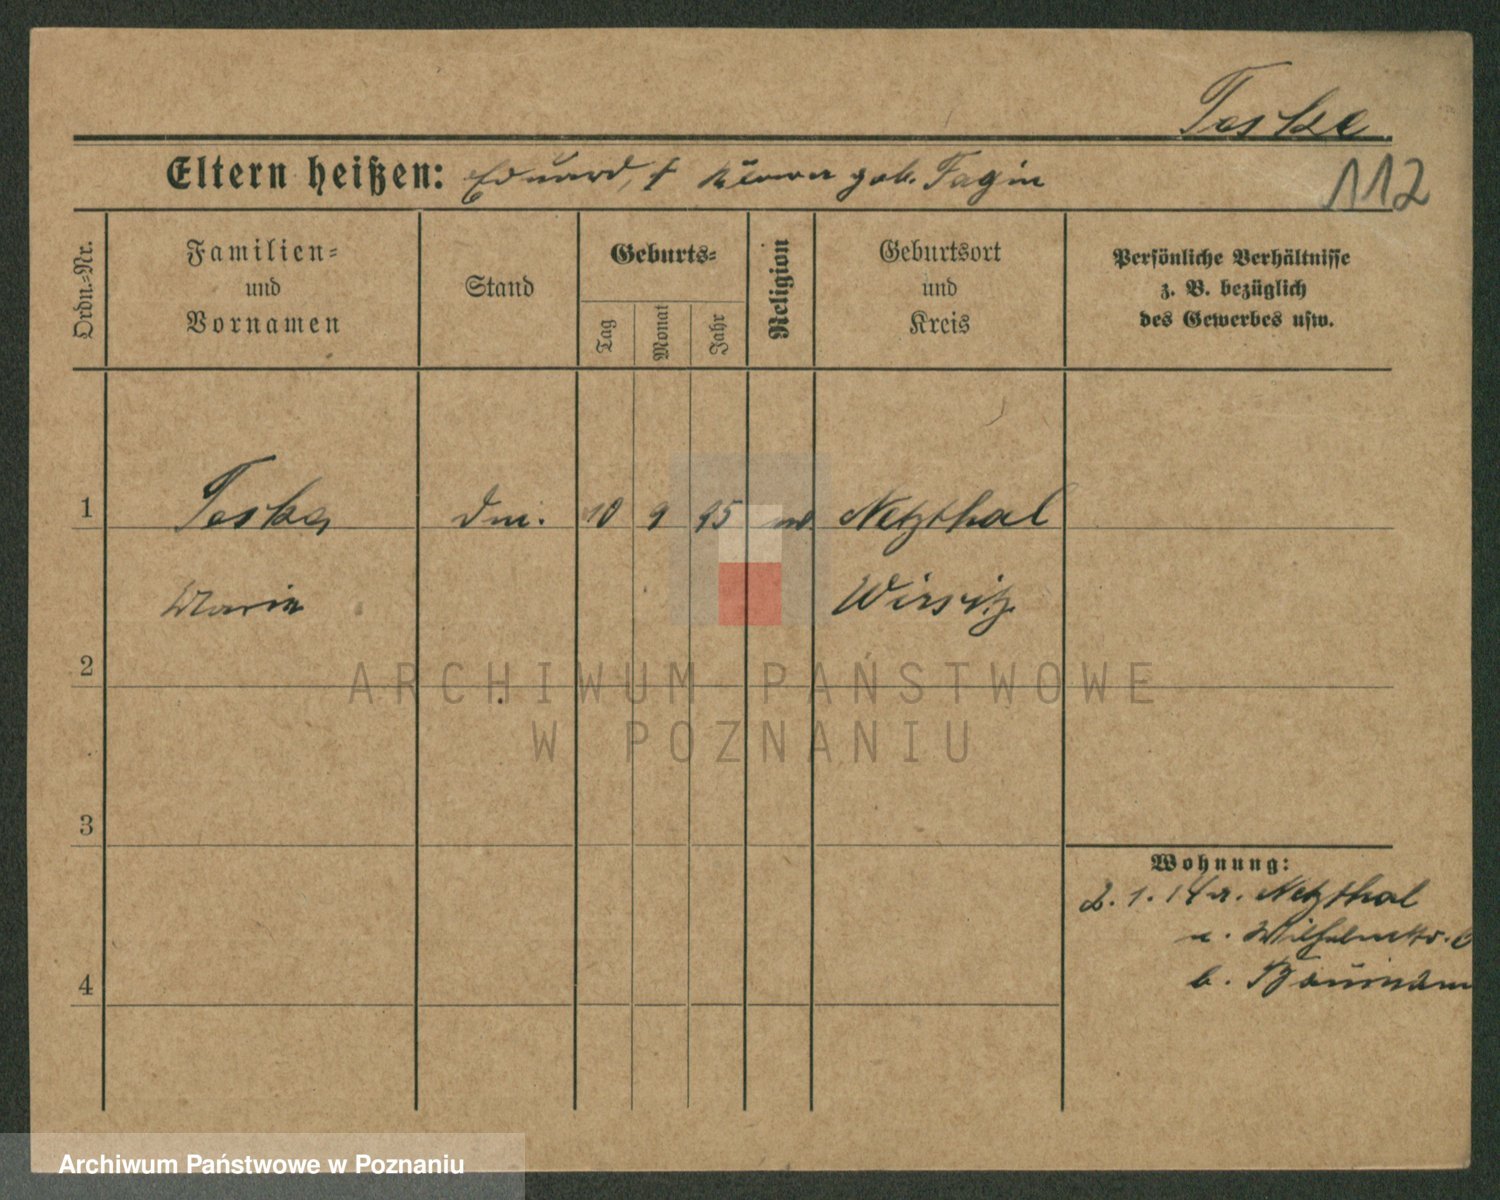 Teske
Eltern heißen: Eduard, geb. Fagin
112
Ordn.=Nr.
Familien=
und
Vornamen
Stand
Geburts=
Tag
Monat
Jahr
Religion
Geburtsort
und
Kreis
Persönliche Verhältnisse
z. B. bezüglich
des Gewerbes usw.
1 Teske 10 9 95 Netzthal
Marie Wirsitz
2
ARCHIWUM PAŃSTWOWE
W POZNANIU
3
Wohnung:
2. 1. 14 Netzthal
n. Wilhelmstr.
4
b.
Archiwum Państwowe w Poznaniu